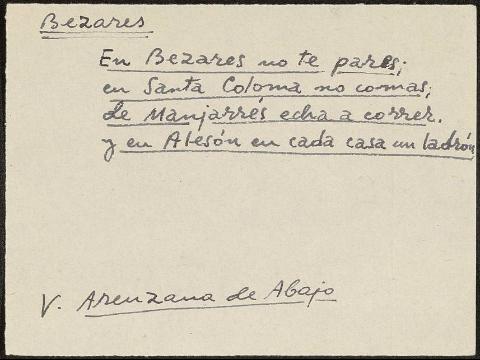 Bezares
En Bezares no te pares;
en Santa Coloma no comas;
de Manjarrés echa a correr.
y en Alesón en cada casa un ladrón
V. Arenzana de Abajo